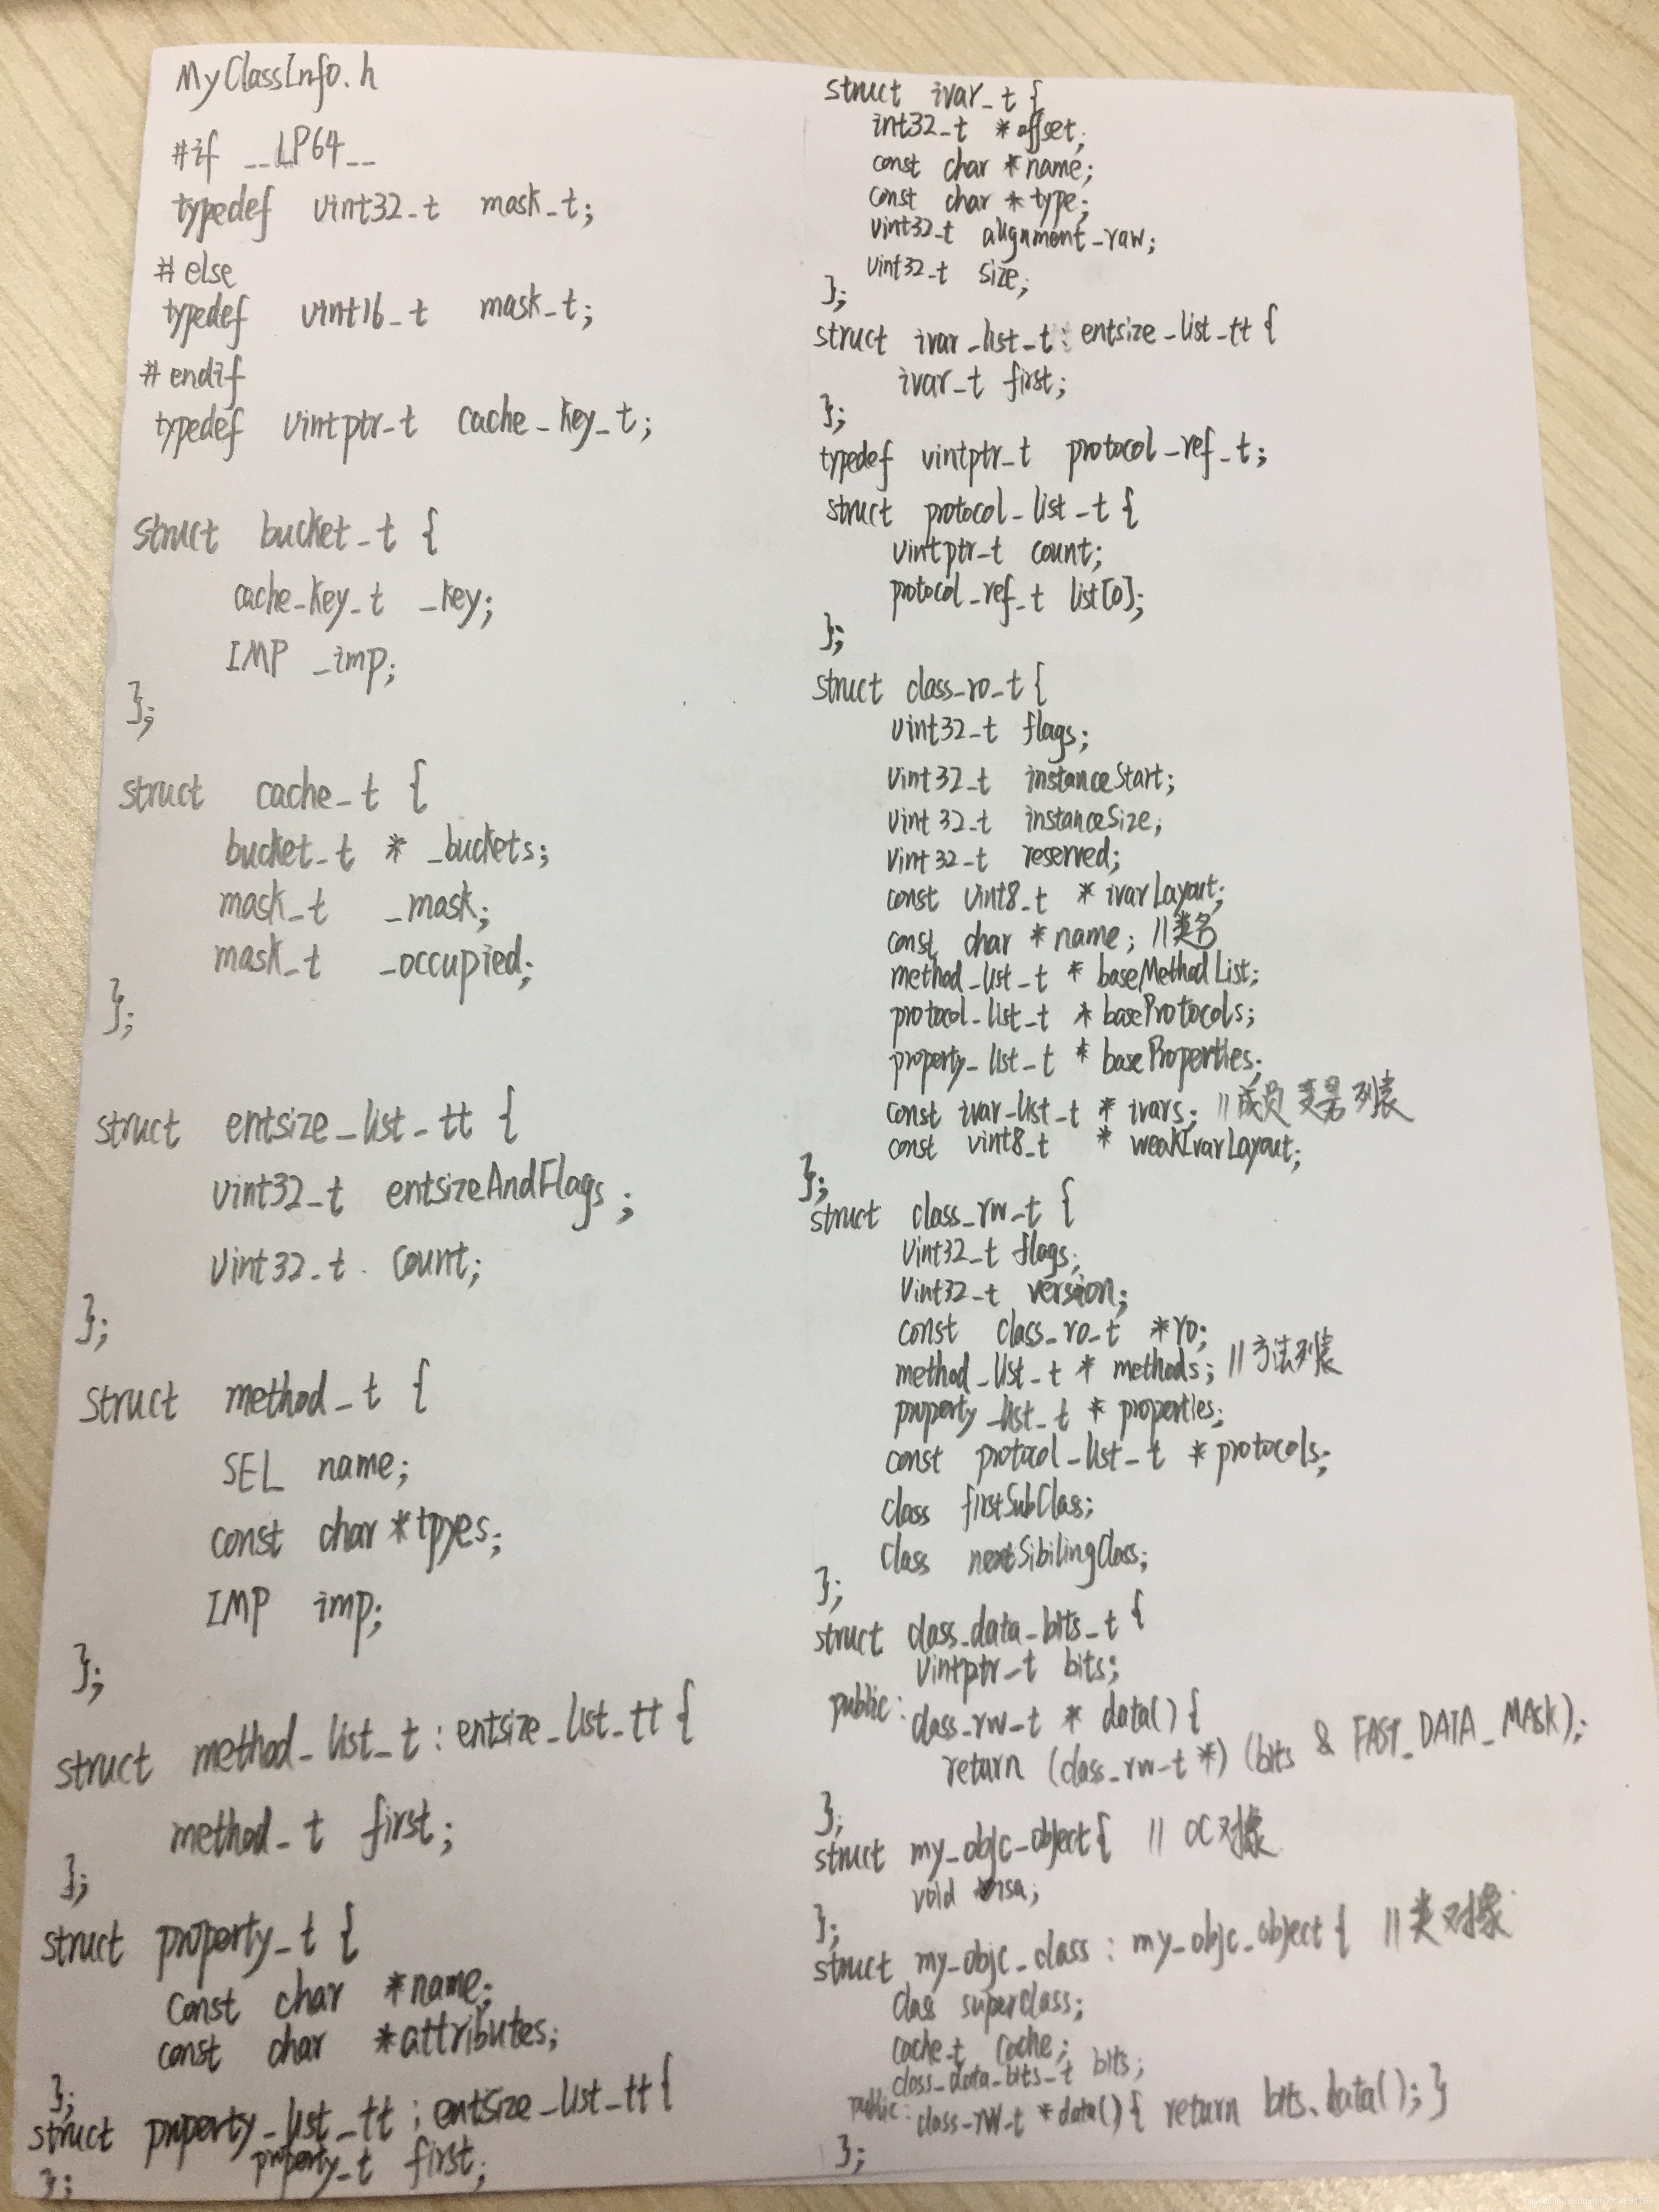 MyClassInfo.h
#if __LP64__
typedef uint32_t mask_t;
#else
typedef uint16_t mask_t;
#endif
typedef uintptr_t cache_key_t;
struct bucket_t {
cache_key_t _key;
IMP _imp;
};
struct cache_t {
bucket_t * _buckets;
mask_t _mask;
mask_t _occupied;
};
struct entsize_list_tt {
uint32_t entsizeAndFlags;
uint32_t count;
};
struct method_t {
SEL name;
const char *tpyes;
IMP imp;
};
struct method_list_t : entsize_list_tt {
method_t first;
};
struct property_t {
const char *name;
const char *attributes;
};
struct property_list_tt : entsize_list_tt {
property_t first;
};
struct ivar_t {
int32_t *offset;
const char *name;
const char *type;
uint32_t alignment_raw;
uint32_t size;
};
struct ivar_list_t : entsize_list_tt {
ivar_t first;
};
typedef uintptr_t protocol_ref_t;
struct protocol_list_t {
uintptr_t count;
protocol_ref_t list[0];
};
struct class_ro_t {
uint32_t flags;
uint32_t instanceStart;
uint32_t instanceSize;
uint32_t reserved;
const uint8_t * ivarLayout;
const char *name; //类名
method_list_t * baseMethodList;
protocol_list_t * baseProtocols;
property_list_t * baseProperties;
const ivar_list_t * ivars; //成员变量列表
const uint8_t * weakIvarLayout;
};
struct class_rw_t {
uint32_t flags;
uint32_t version;
const class_ro_t *ro;
method_list_t * methods; //方法列表
property_list_t * properties;
const protocol_list_t * protocols;
Class firstSubClass;
Class nextSibilingClass;
};
struct class_data_bits_t {
uintptr_t bits;
public: class_rw_t * data() {
return (class_rw_t *) (bits & FAST_DATA_MASK);
};
struct my_objc_object { // OC对象
void isa;
};
struct my_objc_class : my_objc_object { //类对象
Class superclass;
cache_t cache;
class_data_bits_t bits;
public: class_rw_t *data() { return bits.data(); }
};